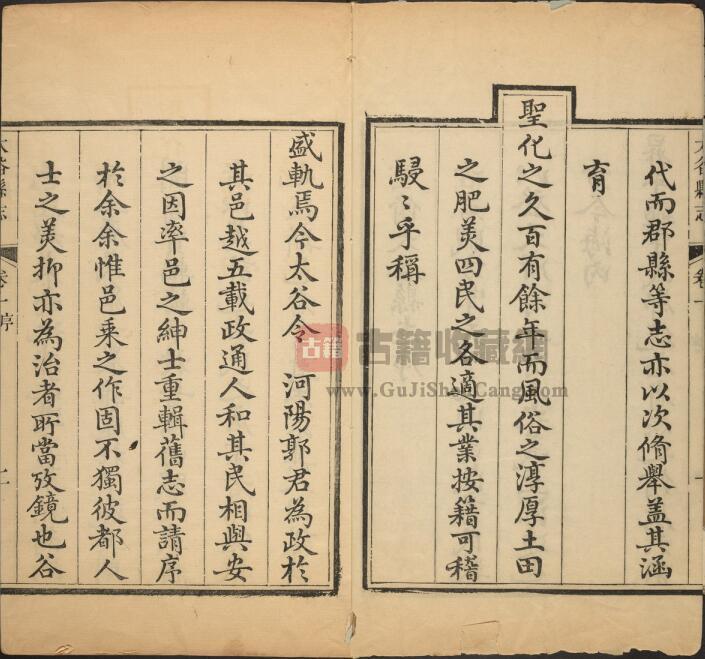 代而郡縣等志亦以次脩舉盖其涵
育
聖化之久百有餘年而風俗之淳厚土田
之肥美四民之各適其業按籍可稽
駸〻乎稱
盛軌焉今太谷令 河陽郭君為政於
其邑越五載政通人和其民相與安
之因率邑之紳士重輯舊志而請序
於余余惟邑乘之作固不獨彼都人
士之美抑亦為治者所當攷鏡也谷
太谷縣志
卷一
一
太谷縣志
卷一序
二
古籍
古籍收藏網
www.GuJiShouCang.com